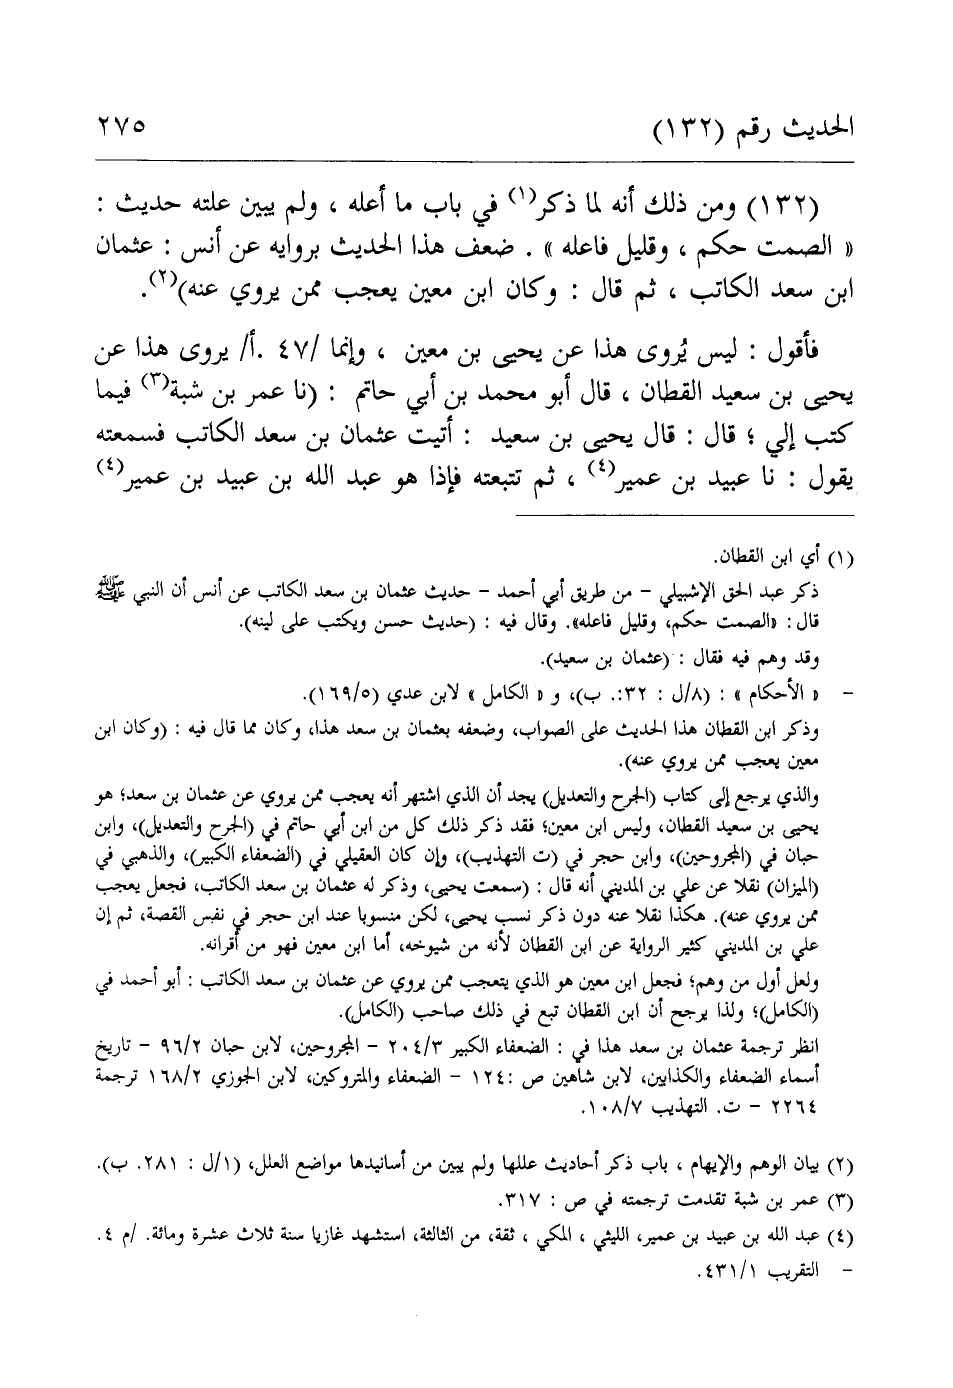 الحديث رقم (١٣٢) ٢٧٥
(١٣٢) ومن ذلك أنه لما ذكر(١) في باب ما أعله ، ولم يبين علته حديث :
« الصمت حكم ، وقليل فاعله » . ضعف هذا الحديث بروايه عن أنس : عثمان
ابن سعد الكاتب ، ثم قال : وكان ابن معين يعجب ممن يروي عنه)(٢).
فأقول : ليس يُروى هذا عن يحيى بن معين ، وإنما /٤٧ .أ/ يروى هذا عن
يحيى بن سعيد القطان ، قال أبو محمد بن أبي حاتم : (نا عمر بن شبة(٣) فيما
كتب إلي ؛ قال : قال يحيى بن سعيد : أتيت عثمان بن سعد الكاتب فسمعته
يقول : نا عبيد بن عمير(٤) ، ثم تتبعته فإذا هو عبد الله بن عبيد بن عمير(٤)
(١) أي ابن القطان.
ذكر عبد الحق الإشبيلي - من طريق أبي أحمد - حديث عثمان بن سعد الكاتب عن أنس أن النبي ﷺ
قال : «الصمت حكم، وقليل فاعله». وقال فيه : (حديث حسن ويكتب على لينه).
وقد وهم فيه فقال : (عثمان بن سعيد).
- « الأحكام » : (٨/ل : ٣٢.: ب)، و « الكامل » لابن عدي (١٦٩/٥).
وذكر ابن القطان هذا الحديث على الصواب، وضعفه بعثمان بن سعد هذا، وكان مما قال فيه : (وكان ابن
معين يعجب ممن يروي عنه).
والذي يرجع إلى كتاب (الجرح والتعديل) يجد أن الذي اشتهر أنه يعجب ممن يروي عن عثمان بن سعد؛ هو
يحيى بن سعيد القطان، وليس ابن معين؛ فقد ذكر ذلك كل من ابن أبي حاتم في (الجرح والتعديل)، وابن
حبان في (المجروحين)، وابن حجر في (ت التهذيب)، وإن كان العقيلي في (الضعفاء الكبير)، والذهبي في
(الميزان) نقلا عن علي بن المديني أنه قال : (سمعت يحيى، وذكر له عثمان بن سعد الكاتب، فجعل يعجب
ممن يروي عنه). هكذا نقلا عنه دون ذكر نسب يحيى، لكن منسوبا عند ابن حجر في نفس القصة، ثم إن
علي بن المديني كثير الرواية عن ابن القطان لأنه من شيوخه، أما ابن معين فهو من أقرانه.
ولعل أول من وهم؛ فجعل ابن معين هو الذي يتعجب ممن يروي عن عثمان بن سعد الكاتب : أبو أحمد في
(الكامل)؛ ولذا يرجح أن ابن القطان تبع في ذلك صاحب (الكامل).
انظر ترجمة عثمان بن سعد هذا في : الضعفاء الكبير ٢٠٤/٣ - المجروحين، لابن حبان ٩٦/٢ - تاريخ
أسماء الضعفاء والكذابين، لابن شاهين ص :١٢٤ - الضعفاء والمتروكين، لابن الجوزي ١٦٨/٢ ترجمة
٢٢٦٤ - ت. التهذيب ١٠٨/٧.
(٢) بيان الوهم والإيهام ، باب ذكر أحاديث عللها ولم يبين من أسانيدها مواضع العلل، (١/ل : ٢٨١. ب).
(٣) عمر بن شبة تقدمت ترجمته في ص : ٣١٧.
(٤) عبد الله بن عبيد بن عمير، الليثي ، المكي ، ثقة، من الثالثة، استشهد غازيا سنة ثلاث عشرة ومائة. /م ٤.
- التقريب ٤٣١/١.